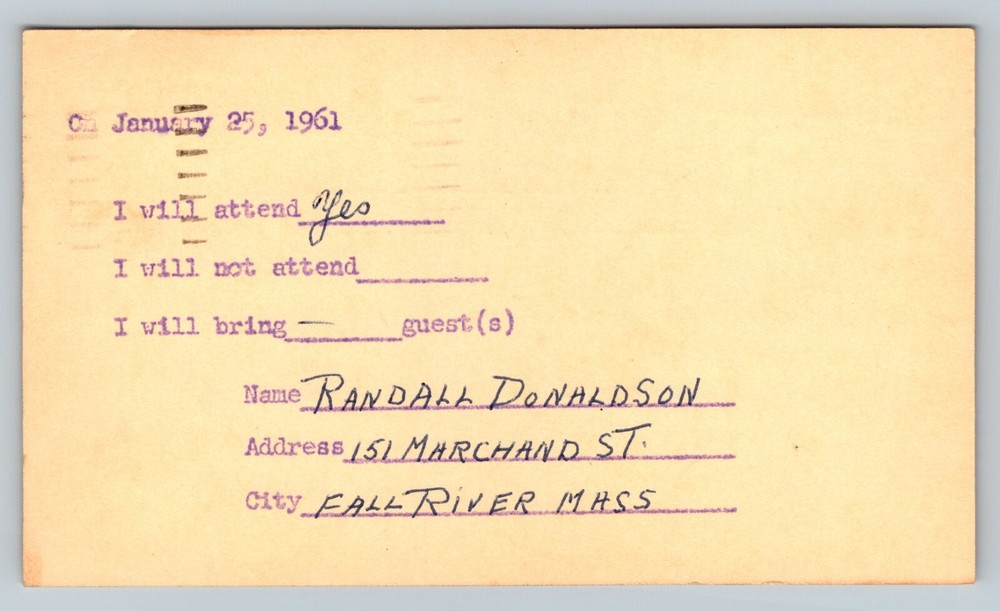 On January 25, 1961
I will attend Yes
I will not attend
I will bring — guest(s)
Name RANDALL DONALDSON
Address 151 MARCHAND ST.
City FALL RIVER MASS